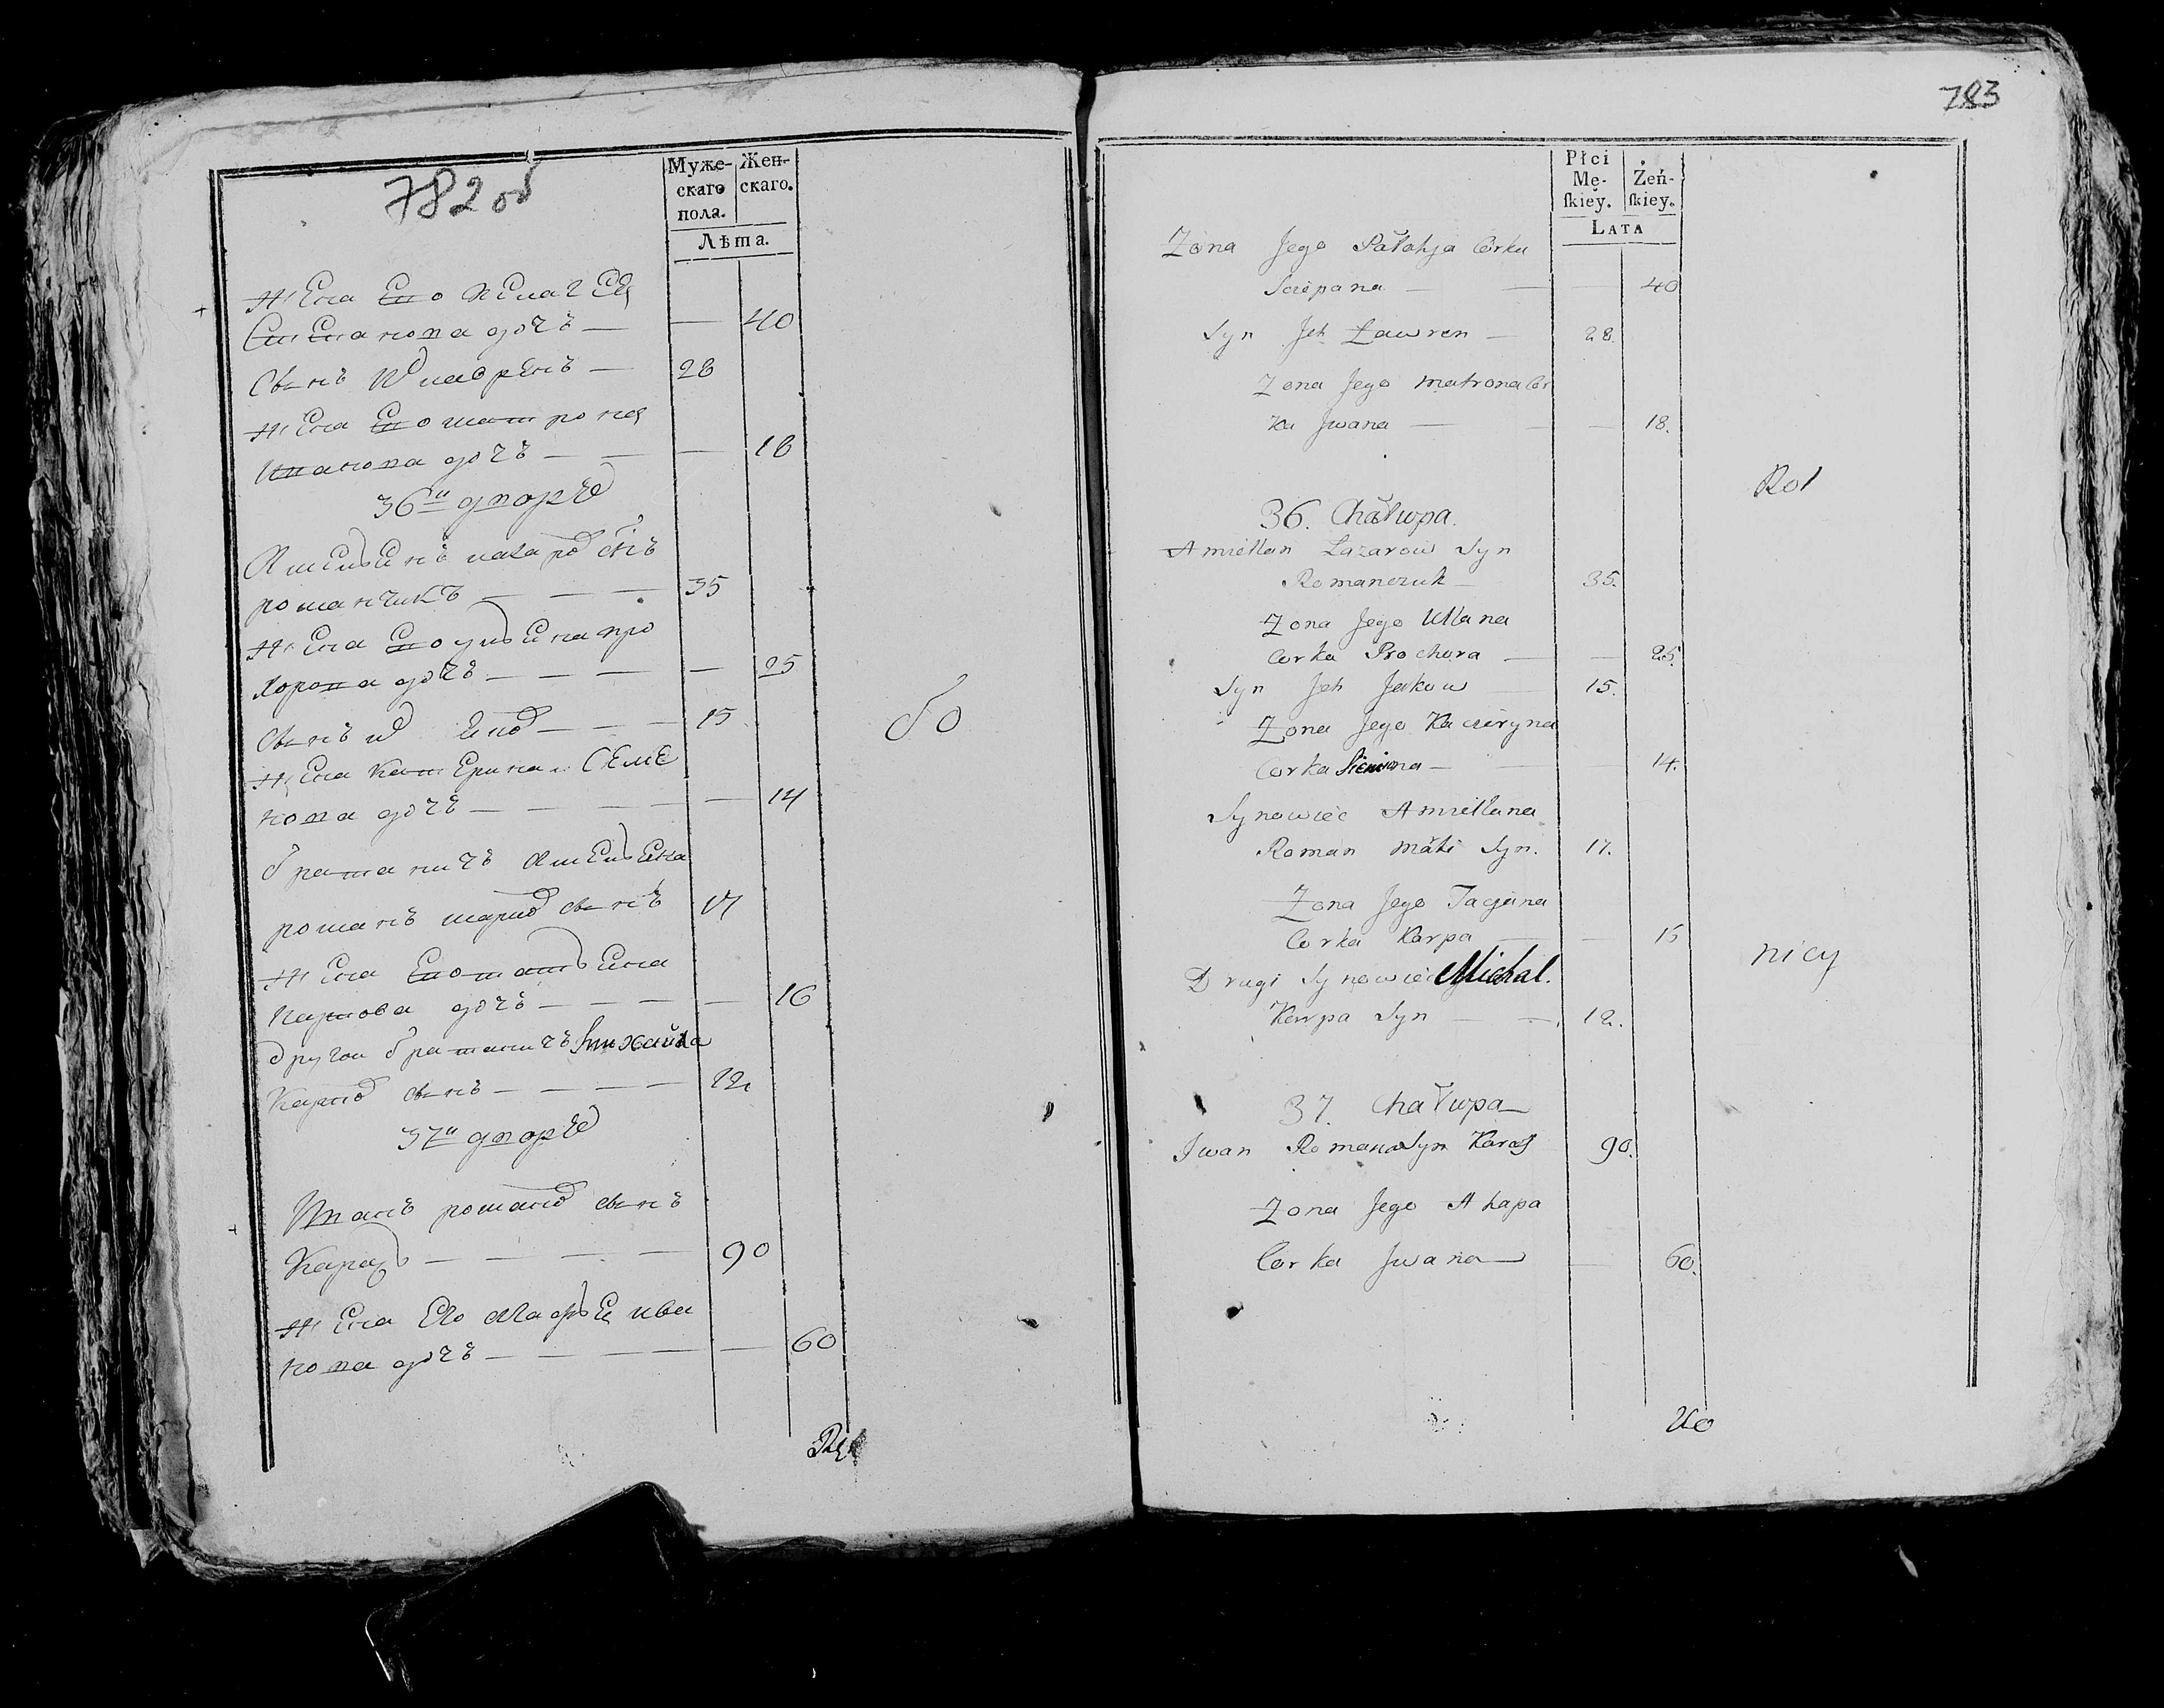 782 об
Муже-
скаго
пола.
Жен-
скаго.
Лѣта.
жена ево пелагея
степанова дочъ — — 40
сынъ лавренъ — 28
жена ево матрона
иванова дочъ — — 18
36й дворъ
Амельянъ лазаровъ снъ
романчикъ — — — 35
жена ево ульяна про
хорова дочъ — — — — 25
сынъ — — — 15
жена катерина семе
нова дочъ — — — — 14
братаничъ Амельяна
романъ сынъ 17
жена ево татьяна
карпова дочъ — — — — 16
другой братаничъ михайла
карповъ сынъ — — — — 12
37й дворъ
Иванъ романовъ сынъ
Карась — — — — 90
жена его Агафья ива
нова дочъ — — — — — 60
бо
783
Płci
Mę-
ſkiey.
Żeń-
ſkiey.
LATA
Zona Jego Pałahja Corka
Sciepana — — — 40
Syn Jch Ławren — 28.
Zona Jego Matrona Cor
ka Jwana — — — 18.
Rol
36. Chałupa.
Amiellan Lazarow Syn
Romanczuk — 35.
Zona Jego Ullana
Corka Prochora — — 25.
Syn Jch Jakow — 15.
Zona Jego Kacieryna
Corka Siemiona — — — 14.
Synowiec Amiellana
Roman Syn. 17.
Zona Jego Tacjana
Corka Karpa — — 15
nicy
Drugi Synowiec Michal.
Karpa Syn — —. 12.
37. Chałupa
Jwan Romana Syn Karaś 90.
Zona Jego Ahapa
Corka Jwana — — 60.